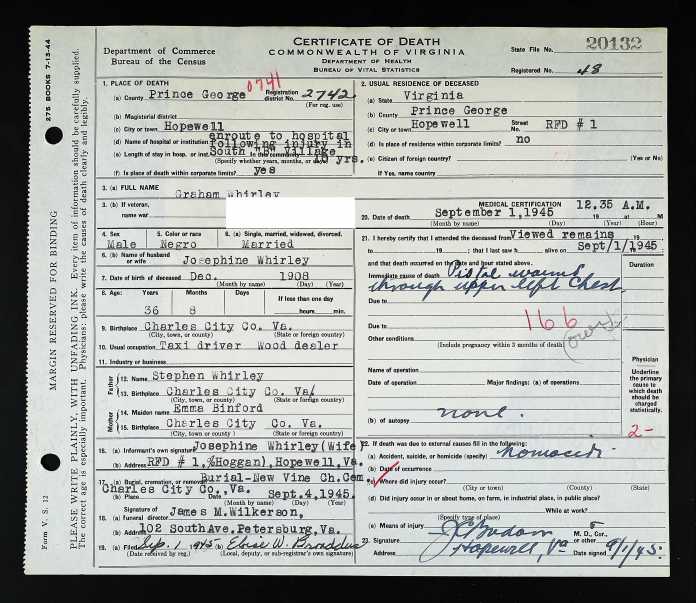 275 BOOKS 7-13-44
MARGIN RESERVED FOR BINDING
PLEASE WRITE PLAINLY, WITH UNFADING INK. Every item of information should be carefully supplied.
The correct age is especially important. Physicians: please write the causes of death clearly and legibly.
Form V. S. 12
CERTIFICATE OF DEATH
Department of Commerce
Bureau of the Census
COMMONWEALTH OF VIRGINIA
DEPARTMENT OF HEALTH
BUREAU OF VITAL STATISTICS
State File No. 20132
Registered No. 48
1. PLACE OF DEATH
0741
(a) County Prince George Registration district No. 2742
(For reg. use)
(b) Magisterial district
(c) City or town Hopewell
(d) Name of hospital or institution enroute to hospital
following injury in
(e) Length of stay in hosp. or inst. South "B" Village in this community 10 yrs.
(Specify whether years, months, or days)
(f) Is place of death within corporate limits? yes
2. USUAL RESIDENCE OF DECEASED
(a) State Virginia
(b) County Prince George
(c) City or town Hopewell Street No. RFD # 1
(d) Is place of residence within corporate limits? no
(e) Citizen of foreign country? (Yes or No)
If Yes, name country
3. (a) FULL NAME Graham Whirley
3. (b) If veteran,
name war
4. Sex Male
5. Color or race Negro
6. (a) Single, married, widowed, divorced. Married
6. (b) Name of husband or wife Josephine Whirley
7. Date of birth of deceased Dec. 1908
(Month by name) (Day) (Year)
8. Age: Years 36 Months 8 Days If less than one day
hours min.
9. Birthplace Charles City Co. Va.
(City, town, or county) (State or foreign country)
10. Usual occupation Taxi driver Wood dealer
11. Industry or business
Father
12. Name Stephen Whirley
13. Birthplace Charles City Co. Va.
(City, town, or county) (State or foreign country)
Mother
14. Maiden name Emma Binford
15. Birthplace Charles City Co. Va.
(City, town or county) (State or foreign country)
16. (a) Informant's own signature Josephine Whirley(Wife)
(b) Address RFD # 1,%Hoggan),Hopewell,Va.
17. (a) Burial, cremation, or removal Burial-New Vine Ch.Cem.
(b) Place Charles City Co.,Va. Sept.4,1945.
18. (a) Signature of funeral director James M.Wilkerson,
(b) Address 102 SouthAve.Petersburg,Va.
19. (a) Filed Sep. 1 1945 (b) Eloise W. Broaddus
(Date received by reg.) (Local, deputy, or sub-registrar's own signature)
MEDICAL CERTIFICATION 12.35 A.M.
20. Date of death September 1,1945 19 at M
(Month by name) (Day) (Year) (Hour)
21. I hereby certify that I attended the deceased from Viewed remains 19
to 19 ; that I last saw h alive on Sept/1/1945
and that death occurred on the date and hour stated above.
Duration
Immediate cause of death Pistol wound
through upper left Chest.
Due to
166
Due to
(over)
Other conditions
(Include pregnancy within 3 months of death)
Physician
Underline the primary cause to which death should be charged statistically.
Name of operation
Date of operation Major findings: (a) of operations
(b) of autopsy none.
2-
22. If death was due to external causes fill in the following:
(a) Accident, suicide, or homicide (specify) homocide
(b) Date of occurrence
(c) Where did injury occur?
(City or town) (County) (State)
(d) Did injury occur in or about home, on farm, in industrial place, in public place?
While at work?
(Specify type of place)
(e) Means of injury
23. Signature M. D., Cor. or other
Address Hopewell, Va Date signed 9/1/45.